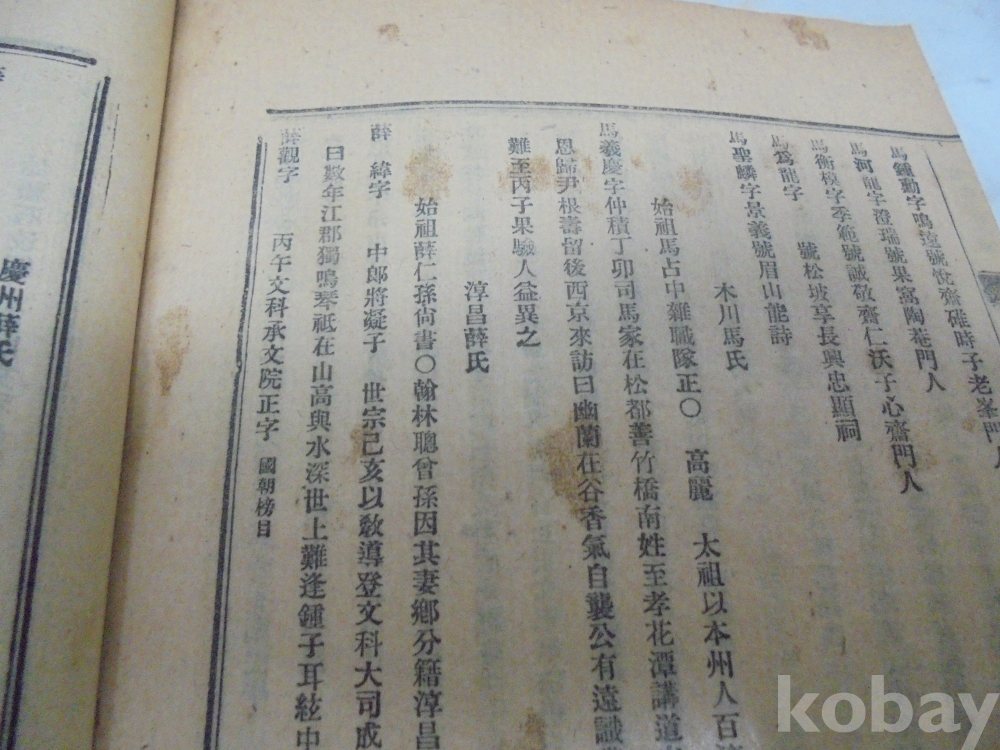 馬鍾動字鳴遠號悅齋碓時子老峯門人
馬河龍字澄瑞號果窩陶菴門人
馬衡模字季範號誠敬齋仁沃子心齋門人
馬爲龍字 號松坡享長興忠顯祠
馬聖麟字景義號眉山能詩
木川馬氏
始祖馬占中雜職隊正○ 高麗 太祖以本州人百
馬義慶字仲積丁卯司馬家在松都善竹橋南姓至孝花潭講道
恩歸尹根壽留後西京來訪曰幽蘭在谷香氣自襲公有遠識
難至丙子果驗人益異之
淳昌薛氏
始祖薛仁孫尙書○翰林聰曾孫因其妻鄕分籍淳昌
薛 緯字 中郞將凝子 世宗己亥以敎導登文科大司成
曰數年江郡獨鳴琴祗在山高與水深世上難逢鍾子耳絃中
薛觀字 丙午文科承文院正字 國朝榜目
慶州薛氏
kobay